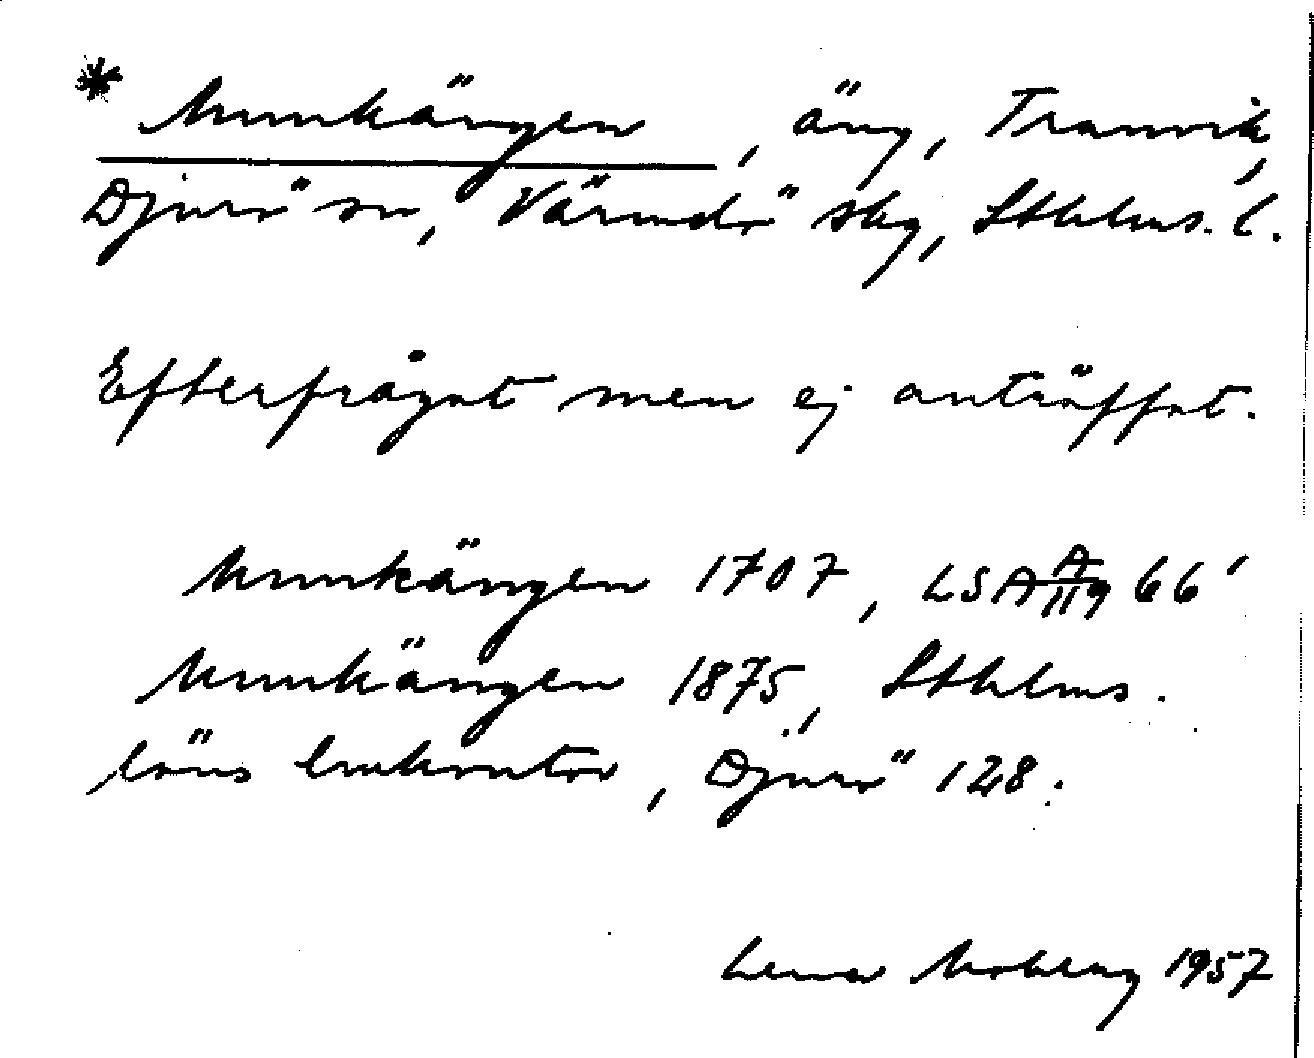 * Munkängen, äng, Tranvik,
Djurö sn, Värmdö skg, Sthlms. l.
Efterfrågat men ej anträffat.
Munkängen 1707, LSA A/119 66'
Munkängen 1875, Sthlms.
läns lmkontor, Djurö 128.
Lena Moberg 1957